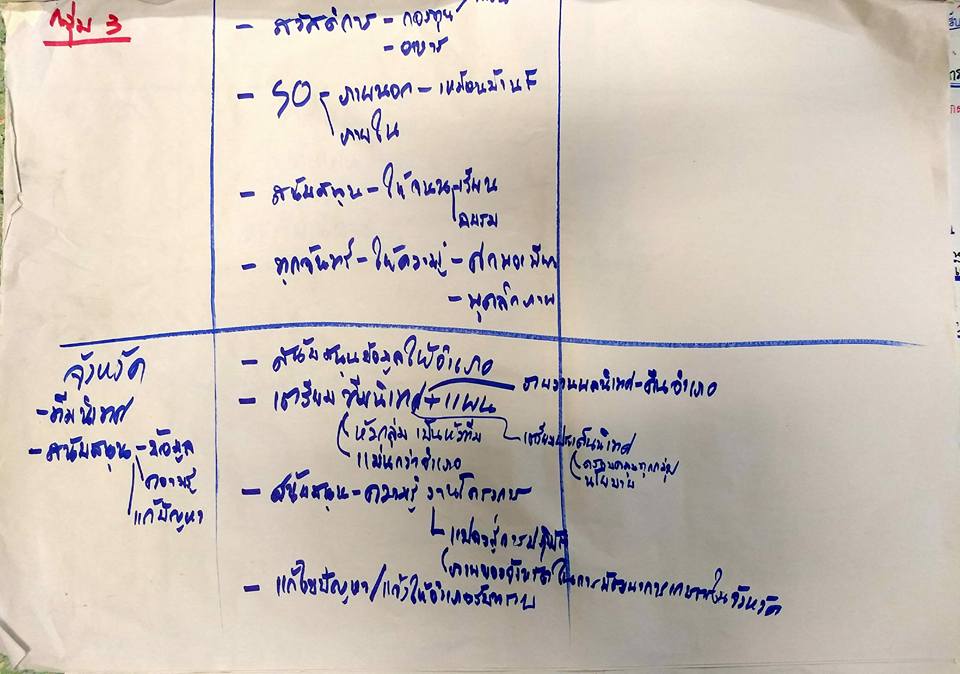 กลุ่ม 3
- สวัสดิการ - กองทุน
- อาหาร
- SO - ภาพนอก - เหมือนบ้าน
ภายใน
- สนับสนุน - ให้จนท. เรียน
อบรม
- ทุกจันทร์ - ให้ความรู้ -
- บุคลิกภาพ
จังหวัด
- ทีมนิเทศ
- สนับสนุน - ข้อมูล
ความรู้
แก้ปัญหา
- สนับสนุนข้อมูลให้อำเภอ
- เตรียม ทีมนิเทศ + แผน
รายงานผลนิเทศ - คืนอำเภอ
หัวกลุ่ม เป็นหัวทีม
แม่นกว่าอำเภอ
เตรียมประเด็นนิเทศ
ครอบคลุมทุกกลุ่ม
นโยบาย
- สนับสนุน - ความรู้ งานโครงการ
แปลงสู่การปฏิบัติ
ภาพของจังหวัด ในการพัฒนาการเกษตรในจังหวัด
- แก้ไขปัญหา / แจ้งให้อำเภอรับทราบ